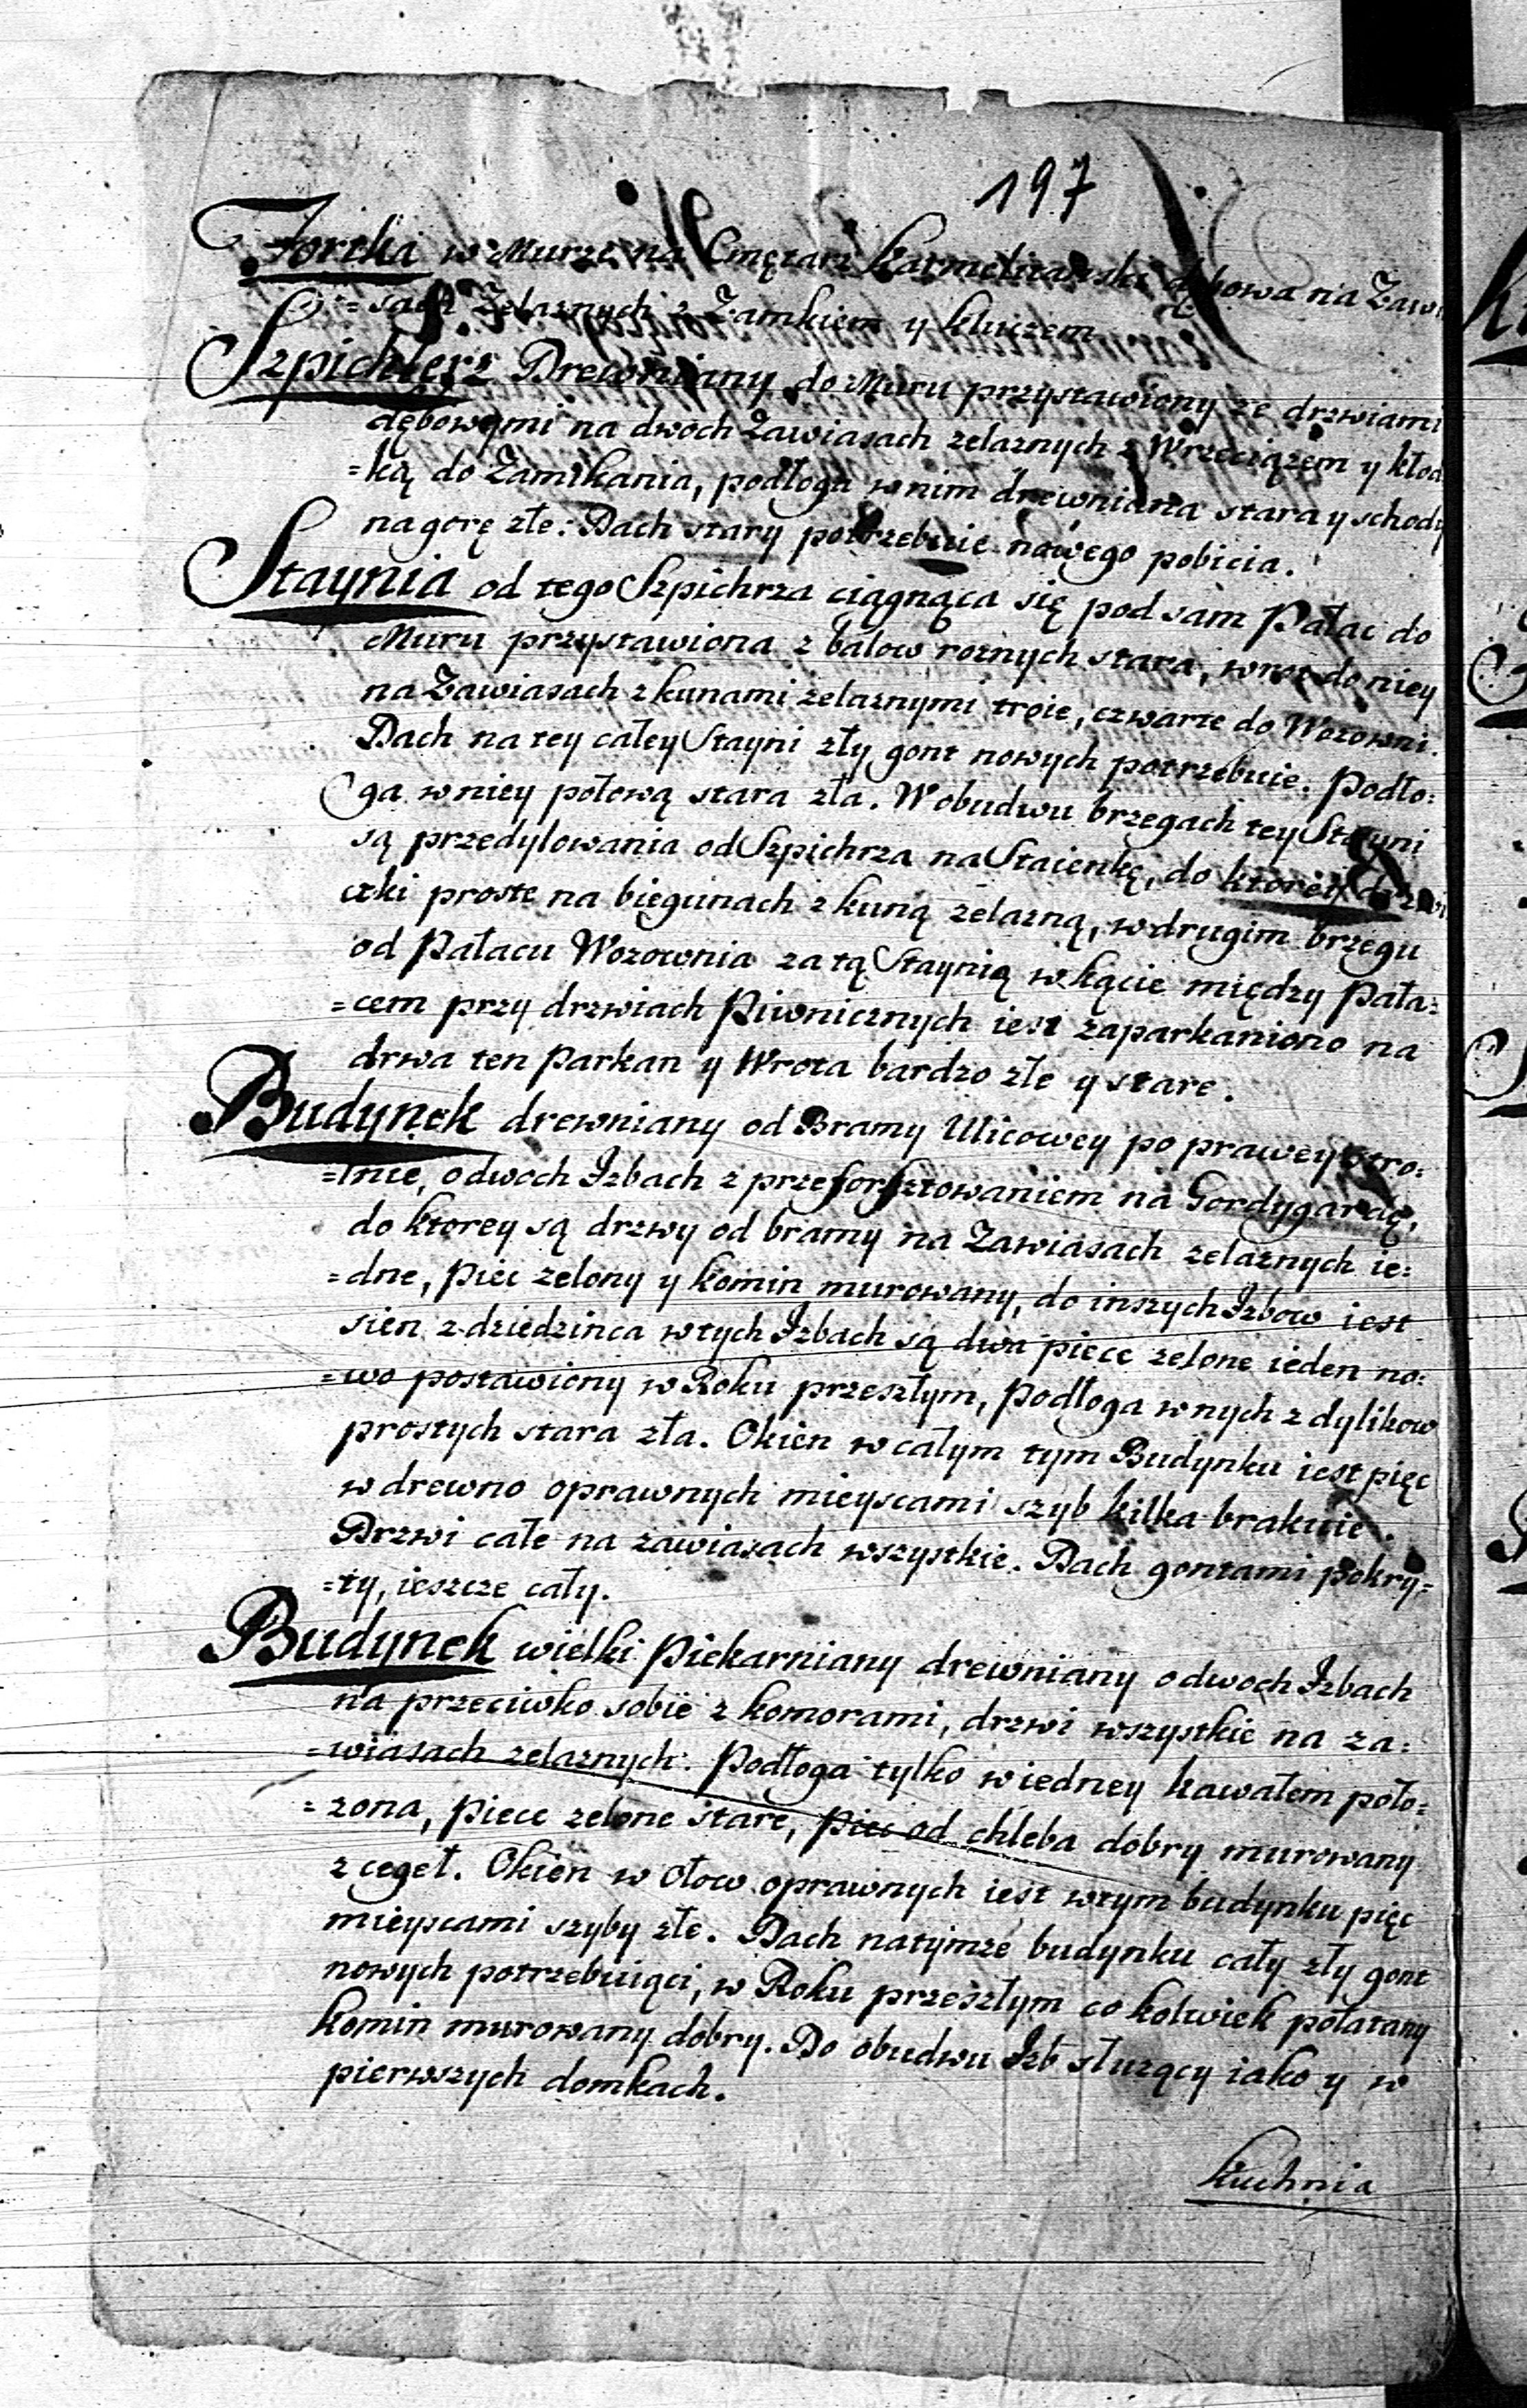 197
Fortka w Murze na Cmętarz Karmelitański dębowa na Zawi
=sach Żelaznych z Zamkiem y kluczem
Szpichlerz Drewniany do Muru przystawiony ze drzwiami
dębowymi na dwoch Zawiasach zelaznych z Wrzeciązem y kłod
=ką do Zamikania, podłoga w nim drewniana stara y schody
na gorę złe: Dach stary potrzebuie nowego pobicia.
Staynia od tego Szpichrza ciągnąca się pod sam Pałac do
Muru przystawiona z balow roznych stara, wrot do niey
na Zawiasach z kunami zelaznymi troie, czwarte do Wozowni.
Dach na tey całey Stayni zły gont nowych potrzebuie. Podło:
ga w niey połową stara zła. W obudwu brzegach tey Stayni
są przedylowania od Szpichrza na Staienkę, do ktorey drzwi
czki proste na biegunach z kuną zelazną, w drugim brzegu
od Pałacu Wozownia za tą Staynią w kącie między Pała:
=cem przy drzwiach Piwnicznych iest zaparkaniono na
drwa ten Parkan y Wrota bardzo złe y stare.
Budynek drewniany od Bramy Ulicowey po prawey stro:
=nie, o dwoch Izbach z przeforsztowaniem na Gordygardę,
do ktorey są drzwy od bramy na Zawiasach zelaznych ie:
=dne, piec zelony y komin murowany, do inszych Izbow iest
sien z dziedzinca w tych Izbach są dwa piece zelone ieden no:
=wo postawiony w Roku przeszłym, Podłoga w nych z dylikow
prostych stara zła. Okien w całym tym Budynku iest pięc
w drewno oprawnych mieyscami szyb kilka brakuie.
Drzwi całe na zawiasach wszystkie. Dach gontami pokry=
=ty, ieszcze cały.
Budynek wielki Piekarniany drewniany o dwoch Izbach
na przeciwko sobie z komorami, drzwi wszystkie na za:
=wiasach zelaznych. Podłoga tylko w iedney kawałem poło=
=zona, Piece zelone stare, Piec od chleba dobry murowany
z cegeł. Okien w ołow oprawnych iest w tym budynku pięc
mieyscami szyby złe. Dach na tymze budynku cały zły gont
nowych potrzebuiąci, w Roku przeszłym co kolwiek połatany
komin murowany dobry. Do obudwu Izb słuzący iako y w
pierwszych domkach.
Kuchnia